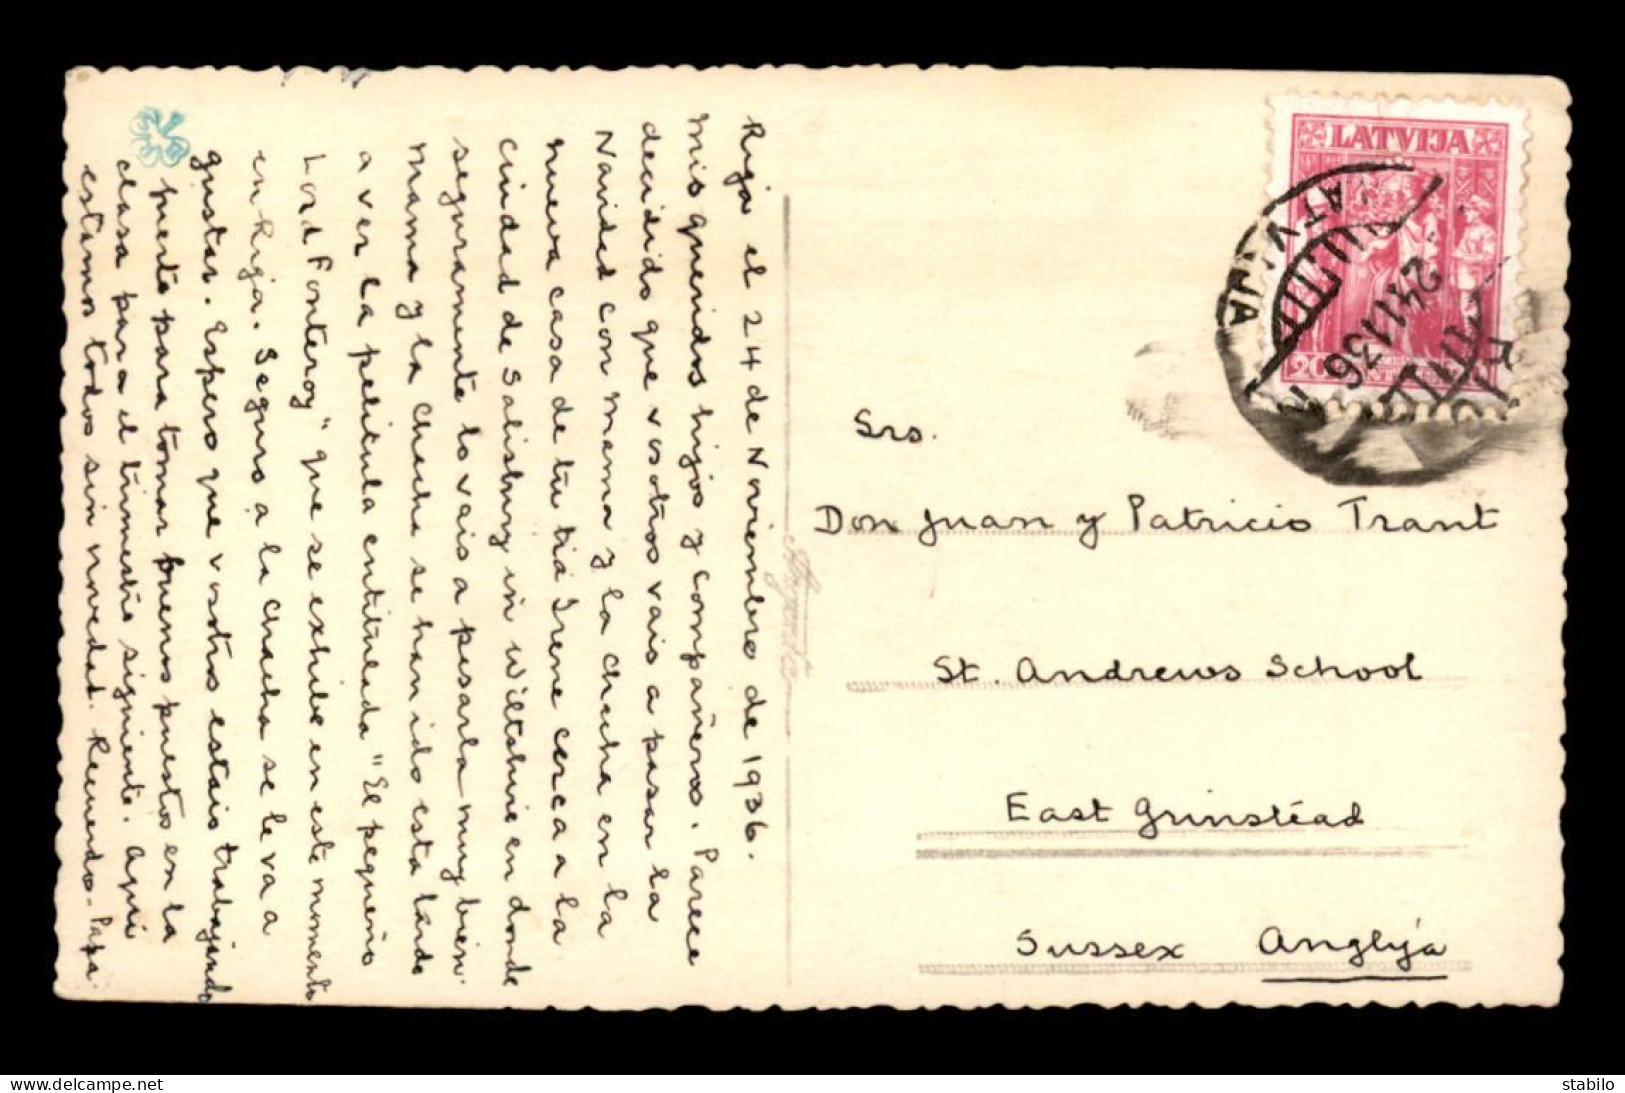 Riga el 24 de Noviembro de 1936.
Mis queridos hijos y compañeros. Parece
decidido que vosotros vais a pasar la
Navidad con mama y la chucha en la
nueva casa de tu tia Irene cerca a la
ciudad de Salisbury in Wiltshire en donde
seguramente lo vais a pasarla muy bien.
Mama y la chucha se han ido esta tardo
a ver la pelicula entitulada "El pequeño
Lord Fonteroy" que se exhibe en este momento
in Riga. Seguro a la chucha se le va a
gustar. Espero que vostros estais trabajando
para tomar buenos puestos en la
clasa para el trimestre siguiente. Aqui
estamos todos sin novedad. Recuerdo - Papa
LATVIJA
20
LATVIJA
24 11 36
Srs.
Don Juan y Patricio Trant
St. Andrews School
East Grinstéad
Sussex Anglija
www.delcampe.net
stabilo